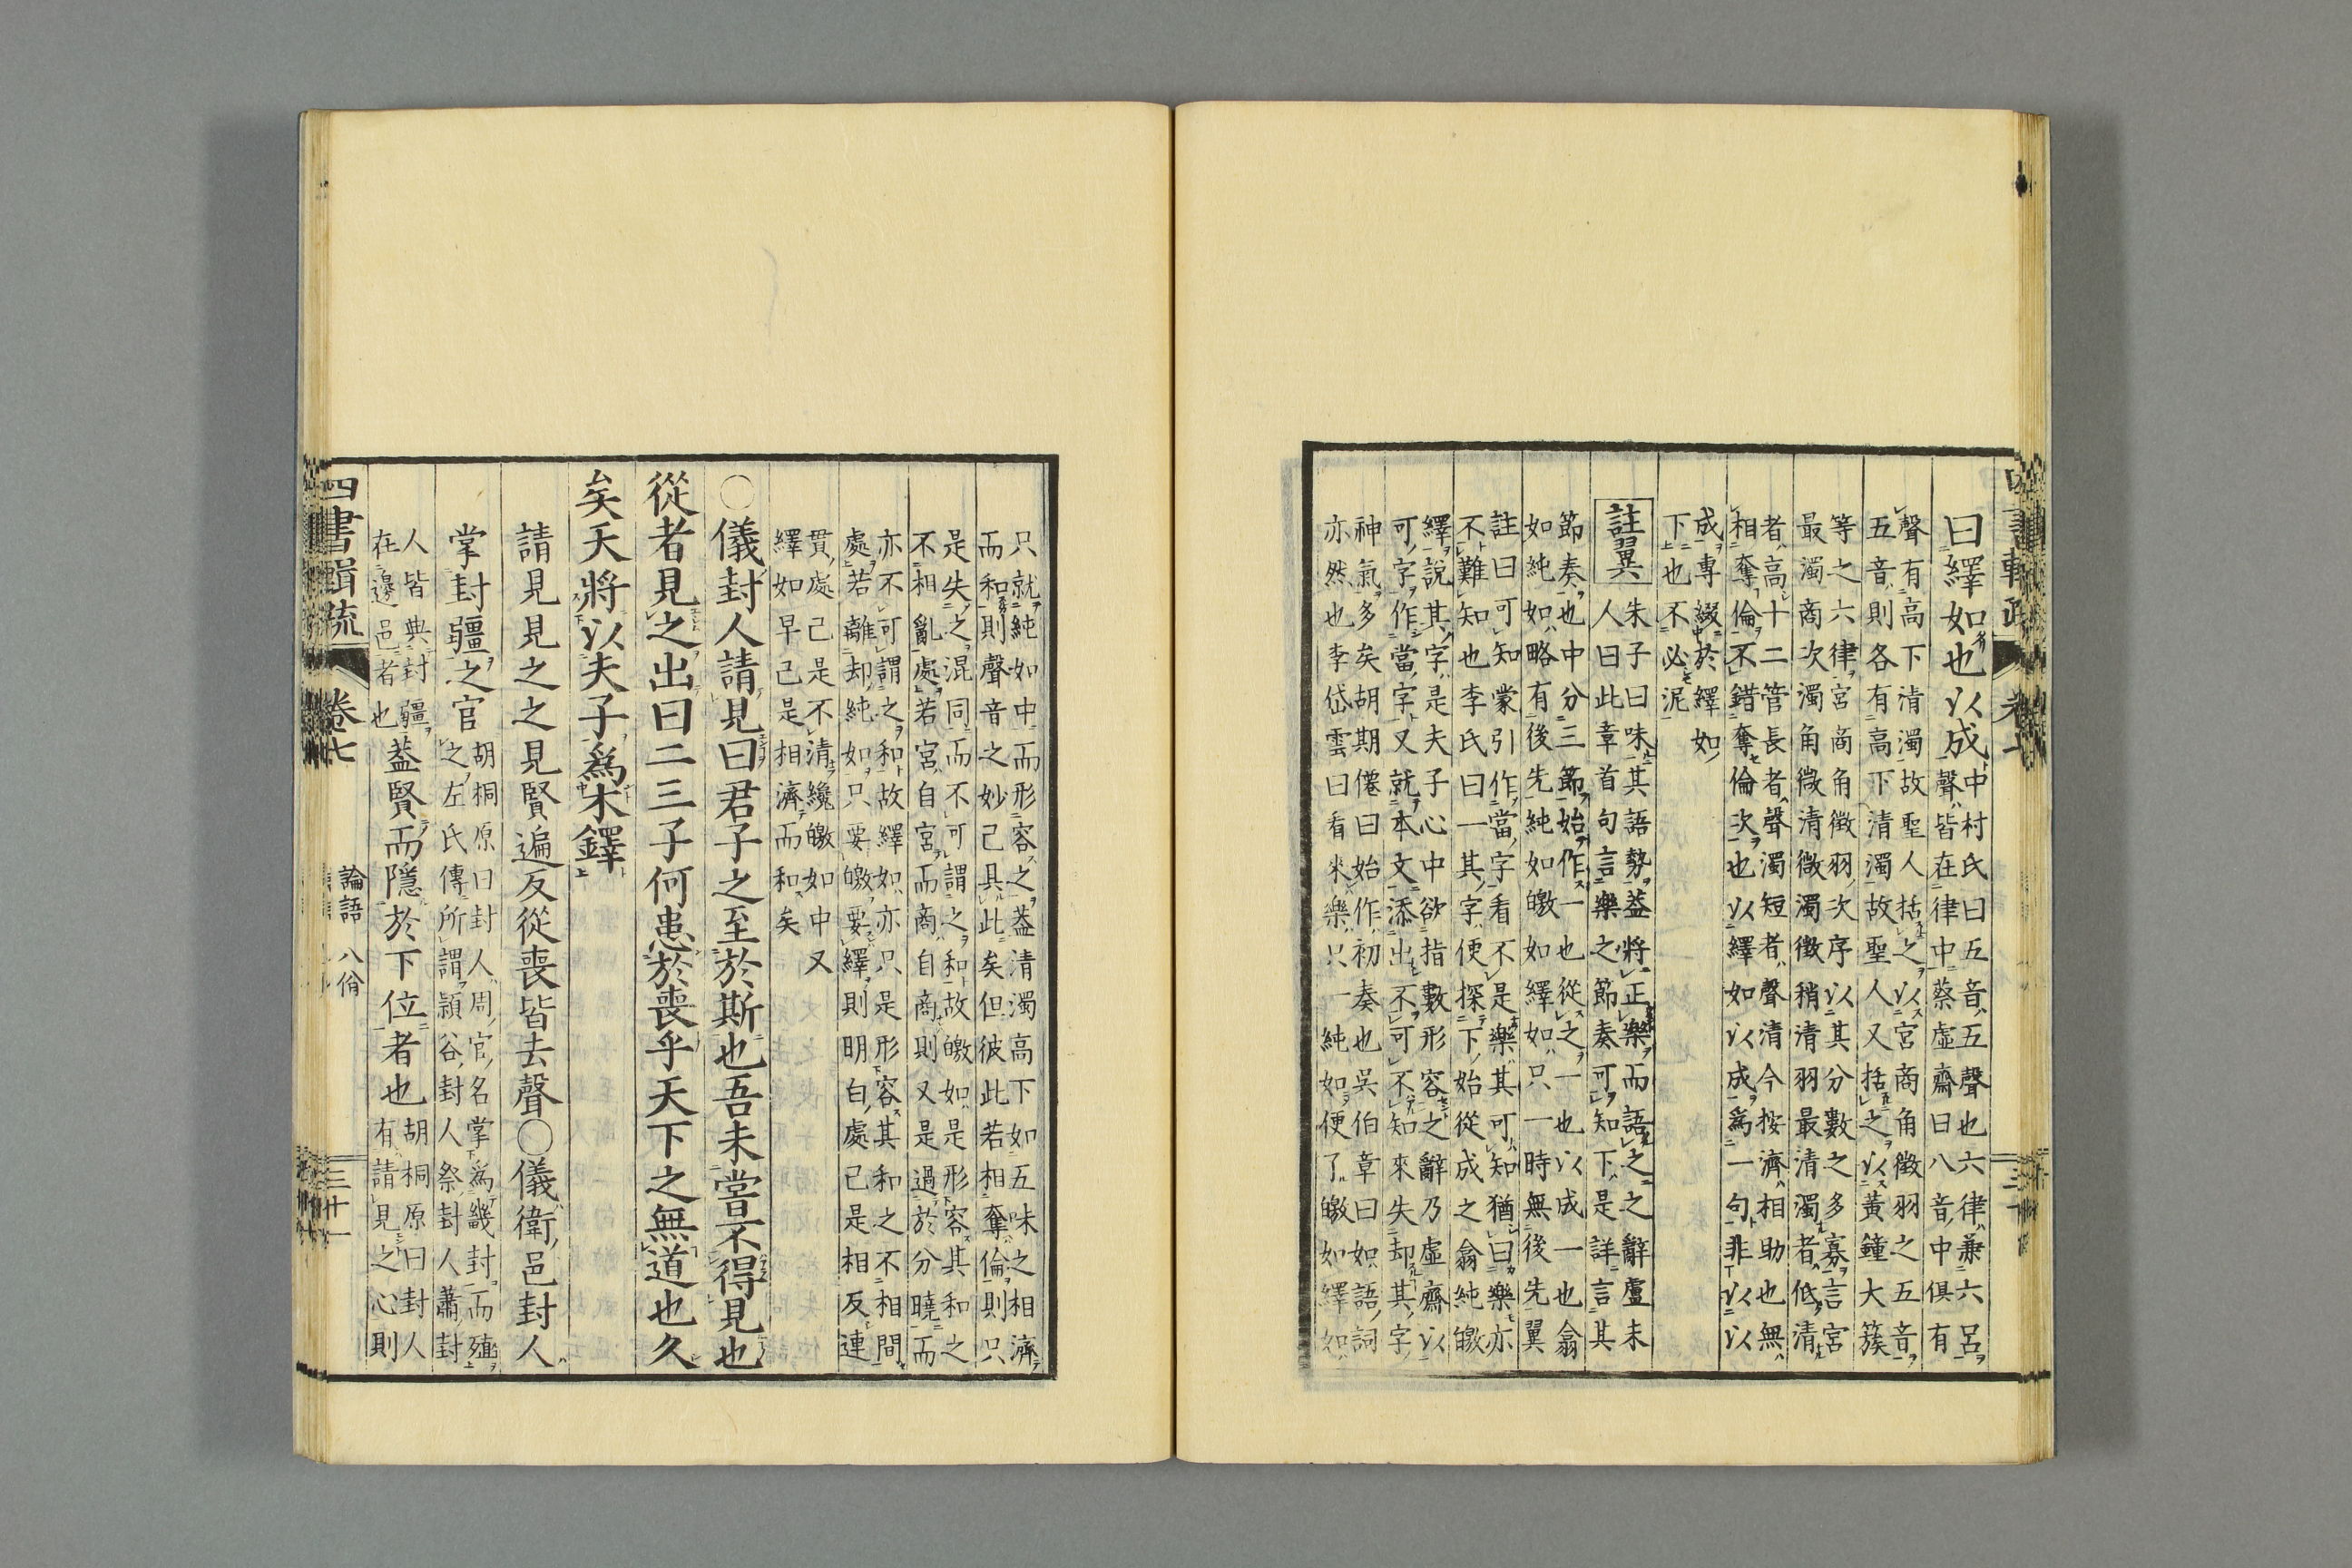 曰繹如也以成
中村氏曰五音五聲也六律兼六呂
聲皆在律中蔡虛齋曰八音中俱有
聲有高下清濁故聖人括之以宮商角徵羽之五音
五音則各有高下清濁故聖人又括之以黃鐘大簇
等之六律宮商角徵羽次序以其分數之多寡言宮
最濁商次濁角微清徵濁徵稍清羽最清濁者低清
者高十二管長者聲濁短者聲清今按濟相助也無
相奪倫不錯奪倫次也以繹如以成爲一句非以以
成專綴於繹如
下也不必泥
註翼
朱子曰味其語勢蓋將正樂而語之之辭盧未
人曰此章首句言樂之節奏可知下是詳言其
節奏也中分三節始作一也從之一也以成一也翕
如純如略有後先純如皦如繹如只一時無後先翼
註曰可知蒙引作當字看不是樂其可知猶曰樂亦
不難知也李氏曰一其字便探下始從成之翕純皦
繹說其字是夫子心中欲指數形容之辭乃虛齋以
可字作當字又就本文添出不可不知來失却其字
神氣多矣胡期僊曰始作初奏也吳伯章曰如語詞
亦然也李岱雲曰看來樂只一純如便了皦如繹如
只就純如中而形容之蓋清濁高下如五味之相濟
而和則聲音之妙已具此矣但彼此若相奪倫則只
是失之混同而不可謂之和故皦如是形容其和之
不相亂處若宮自宮而商自商則又是過於分曉而
亦不可謂之和故繹如亦只是形容其和之不相間
處若離却純如只要皦要繹則明白處已是相反連
貫處已是不清纔皦如中又
繹如早已是相濟而和矣
○儀封人請見曰君子之至於斯也吾未嘗不得見也
從者見之出曰二三子何患於喪乎天下之無道也久
矣天將以夫子爲木鐸
請見見之之見賢遍反從喪皆去聲○儀衛邑封人
掌封疆之官
胡桐原曰封人周官名掌爲畿封而殖
之左氏傳所謂潁谷封人祭封人蕭封
人皆典封疆
在邊邑者也
蓋賢而隱於下位者也
胡桐原曰封人
有請見之心則
四書輯疏
卷七
論語 八佾
三十一